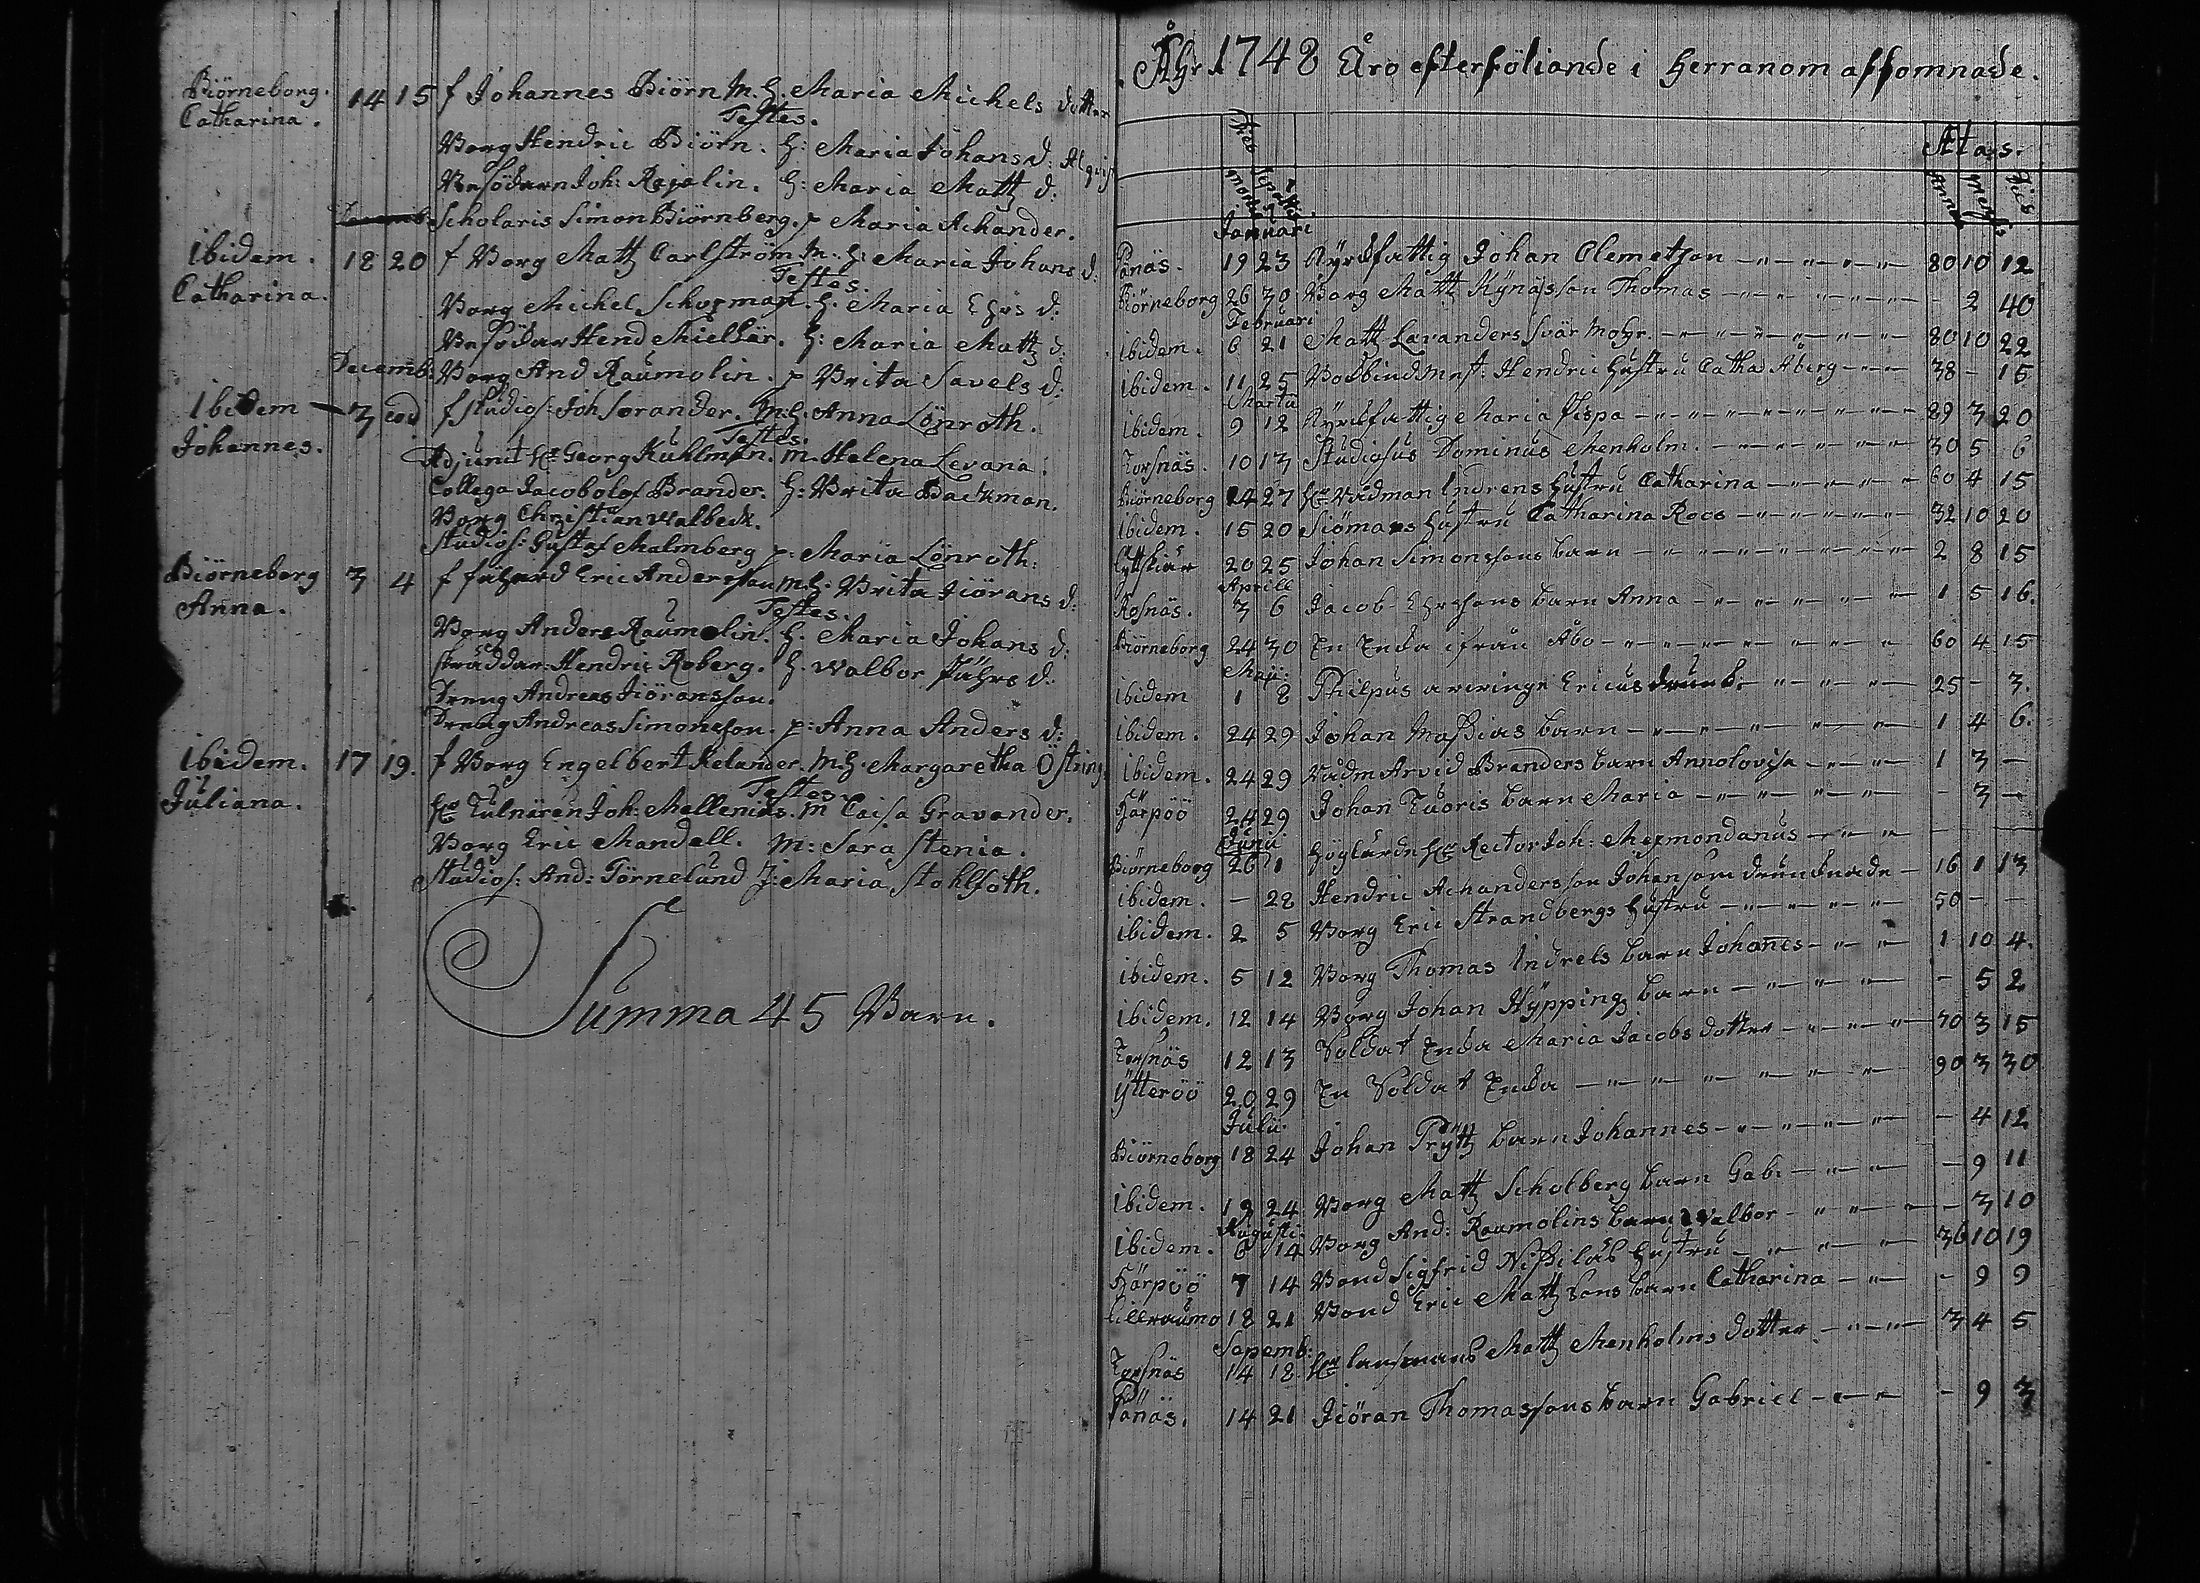 Biörneborg. 14 15 f Johannes Biörn M. H. Maria Michels dotter
Catharina. Testes.
Borg Hendric Biörn. H: Maria Johans d: Algvist
Besökaren Joh: Rojalin. H: Maria Mattz d:
Scholaris Simon Biörnberg. p Maria Achander.
Ibidem. 18 20 f Borg Mattz Carlström M. H: Maria Johans d:
Catharina. Testes.
Borg Michel Schopman. H. Maria Ehrs d:
Besökar Hend Mielkär. H: Maria Mattz d:
Decemb: Borg And Raumolin. p Brita Savels d:
Ibidem 3 eod f Studios: Joh Sorander. M:H. Anna Lönroth.
Johannes. Testes.
Adjunct Hr Georg Kuhlman. M. Helena Levana.
Collega Jacob Olof Brander. H: Brita Backman.
Borg Christian Walbeck.
Studios: Gustaf Malmberg p: Maria Lönroth:
Biörneborg 3 4 f Eric Andersson M.H: Brita Jiörans d:
Anna. Testes.
Borg Anders Raumolin. H. Maria Johans d:
Skräddar: Hendric Roberg. H. Walbor Påhrs d:
Dreng Andreas Jiöransson.
Dreng Andreas Simonsson. p: Anna Anders d:
Ibidem. 17 19. f Borg Engelbert Kelander. M.H. Margaretha Östring
Juliana. Testes.
Hr Tulnären Joh: Mellenius. M Caisa Gravander.
Borg Eric Mandell. M: Sara Stenia.
Studios: And: Törnelund J: Maria Stohlfoth.
Summa 45 Barn.
Åhr 1748 Äro efterföliande i Herranom afsomnade.
Ætatis.
Januari
Pånäs. 19 23 Kyrkfattig Johan Clemetson 80 10 12
Biörneborg 26 30 Borg Mattz Kynässon Thomas - 2 40
Februari
Ibidem. 6 21 Matt Laranders Svär Mohr. 80 10 22
Ibidem. 11 25 Bokbind Mest: Hendric Hustru Catha Åberg 38 - 15
Martii
Ibidem. 9 12 Kyrkfattig Maria Pispa 89 3 20
Torsnäs. 10 13 Studiosus Dominus Menholm. 30 5 6
Biörneborg 14 27 Hr Rådman Indrens Hustru Catharina 60 4 15
Ibidem. 15 20 Siömans Hustru Catharina Roos 32 10 20
Lyttskiär 20 25 Johan Simonssons barn 2 8 15
Aprill
Rosnäs. 3 6 Jacob Ehrssons barn Anna 1 5 16.
Biörneborg 24 30 En Enka ifrån Åbo 60 4 15
Maji:
Ibidem 1 8 Philpus Ericus drunk. 25 - 3.
Ibidem. 24 29 Johan Mathias barn 1 4 6.
Ibidem. 24 29 Rådm Arvid Branders barn Annolovisa 1 3 -
Härpöö 24 29 Johan Tuoris barn Maria - 3 -
Junii
Biörneborg 26 1 Höglärde Hr Rector Joh: Mexmondanus - - -
Ibidem. - 28 Hendric Achanderssons Johan som drunknade 16 1 13
Ibidem. 2 5 Borg Eric Strandbergs hustru 50 - -
Ibidem. 5 12 Borg Thomas Indrels barn Johanes 1 10 4.
Ibidem. 12 14 Borg Johan Hyppingz barn - 5 2
Torsnäs 12 13 Soldat Enka Maria Jacobs dotter 70 3 15
Ytteröö 20 29 En Soldat Enka 90 3 30
Julii.
Biörneborg 18 24 Johan Prytz barn Johannes - 4 12
Ibidem. 19 24 Borg Mattz Scholberg barn Gab: - 9 11
Augusti.
Ibidem. 6 14 Borg And: Raumolins barn Walbor - 3 10
Härpöö 7 14 Bond Sigfrid Nissilas hustru 36 10 19
Lillraumo 18 21 Bond Eric Mattzsons barn Catharina - 9 9
Sepemb:
Torsnäs 14 18 Hr Lansmans Mattz Menholms dotter 3 4 5
Pånäs. 14 21 Jiöran Thomassons barn Gabriel - 9 3